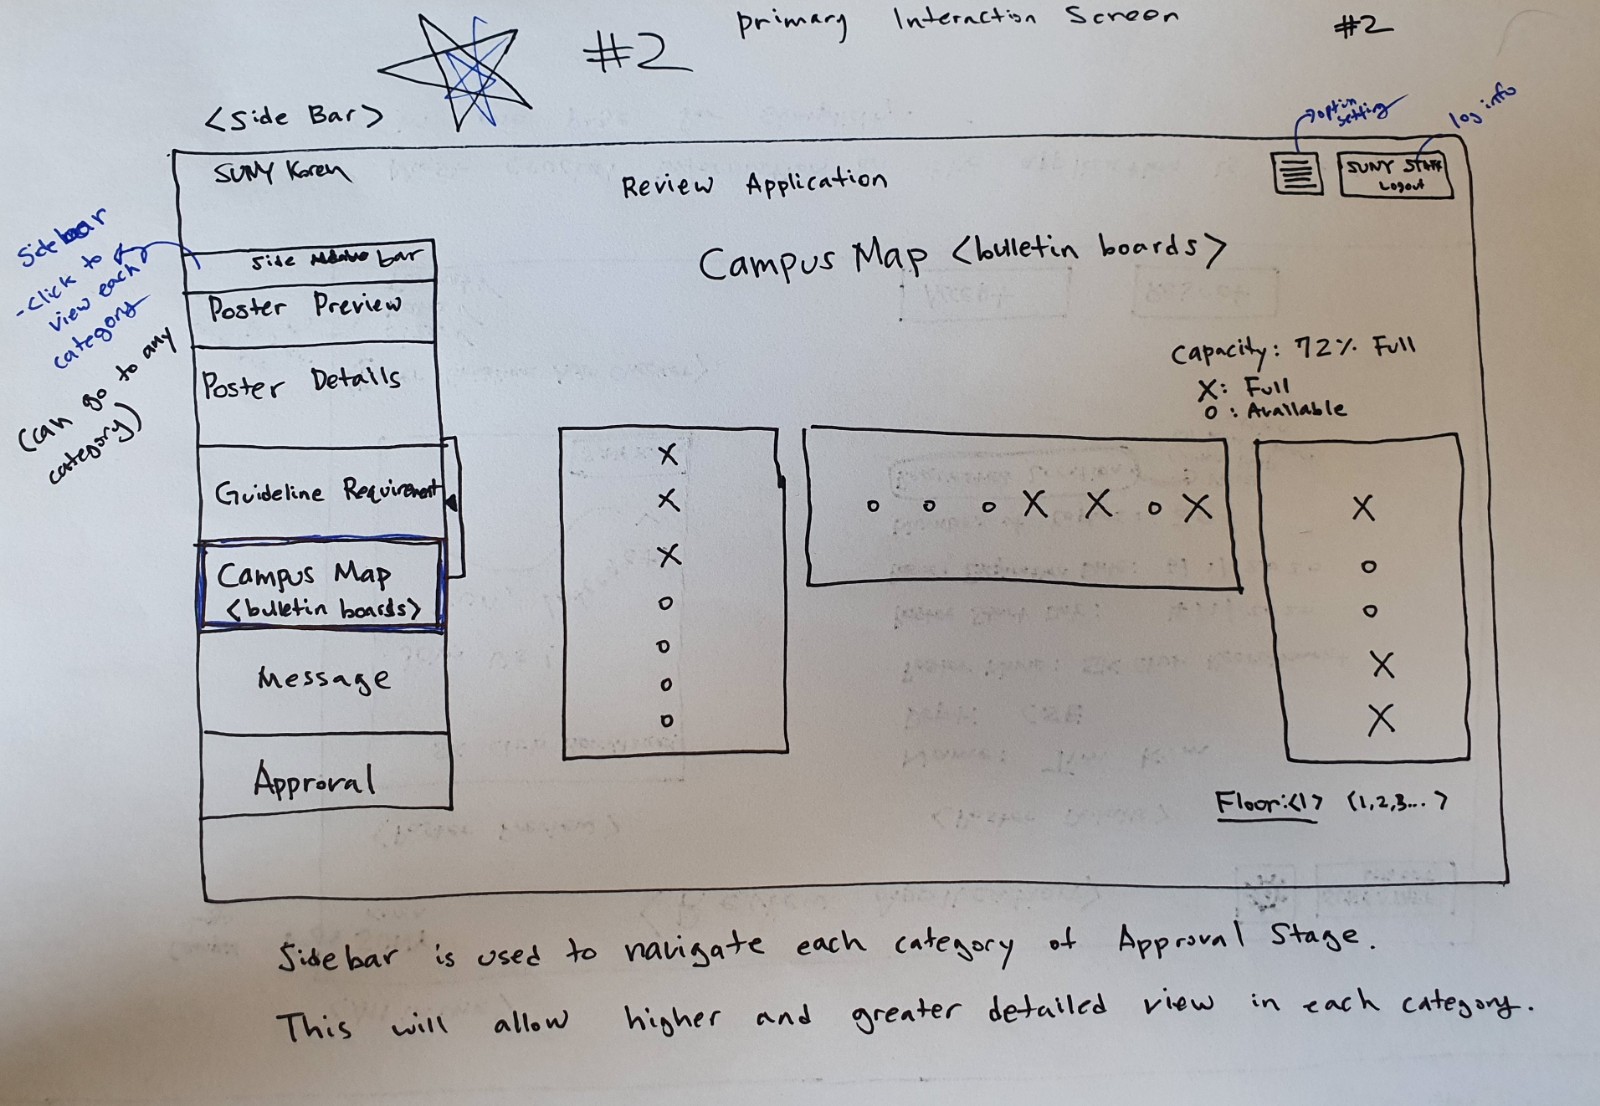 primary Interaction Screen
#2
#2
<Side Bar>
option
setting
log info
SUNY Korea
Review Application
SUNY Staff
Logout
Sidebar
-Click to
view each
category
(can go to any
category)
Side bar
Poster Preview
Poster Details
Guideline Requirement
Campus Map
<bulletin boards>
Message
Approval
Campus Map <bulletin boards>
Capacity: 72% Full
X: Full
o: Available
X
X
X
o
o
o
o
o o o X X o X
X
o
o
X
X
Floor:<1> (1,2,3... >
Sidebar is used to navigate each category of Approval Stage.
This will allow higher and greater detailed view in each category.